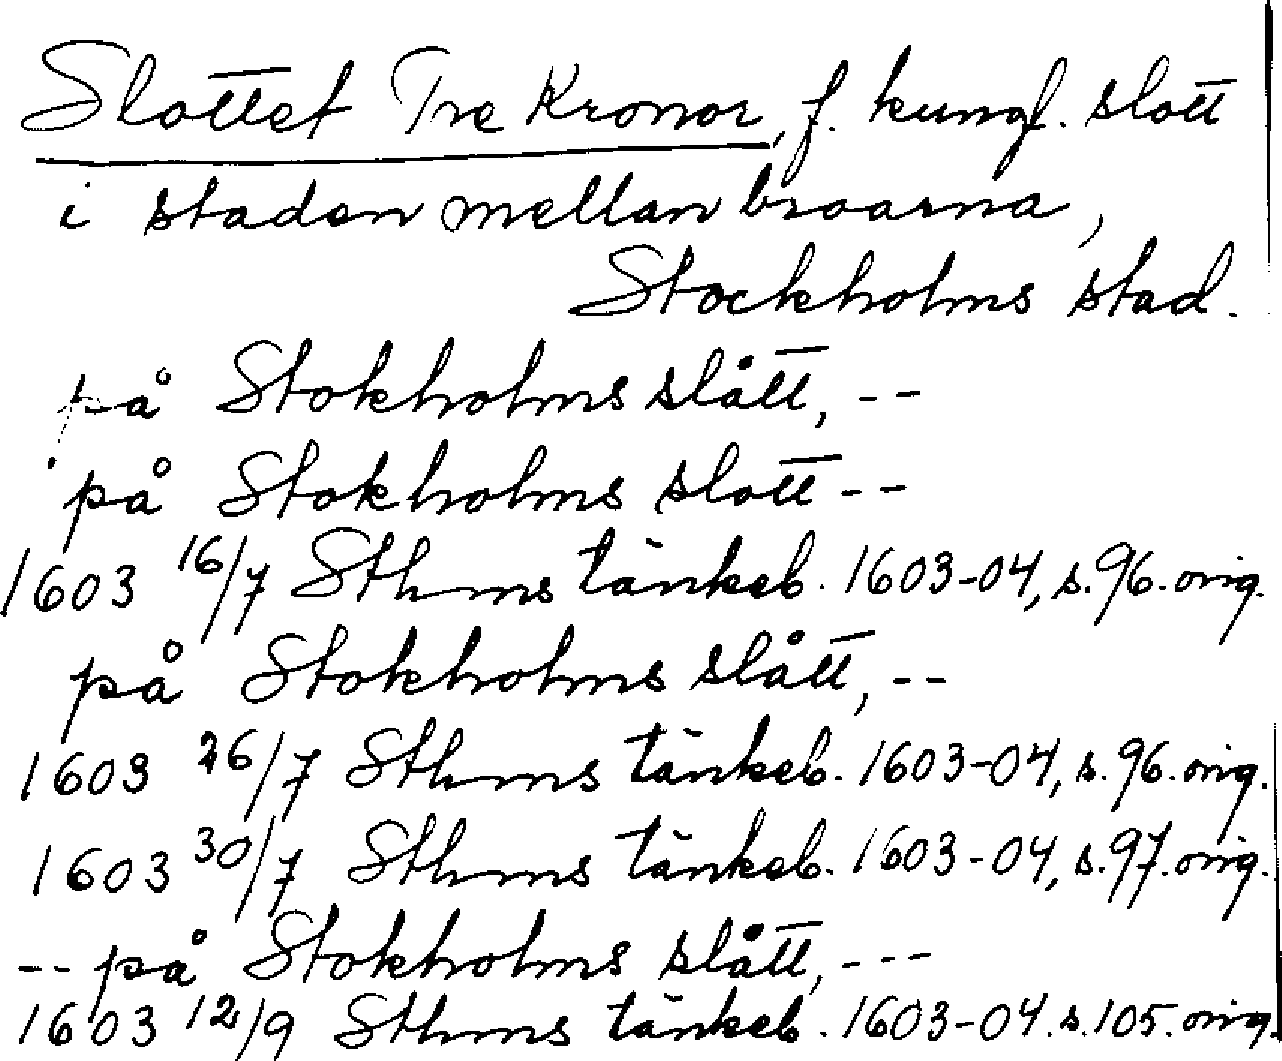 Slottet Tre Kronor, f. kungl. slott
i staden mellan broarna,
Stockholms stad.
på Stokholms slått, --
på Stokholms slott --
1603 16/7 Sthms tänkeb. 1603-04, s. 96. orig.
på Stokholms slått, --
1603 26/7 Sthms tänkeb. 1603-04, s. 96. orig.
1603 30/7 Sthms tänkeb. 1603-04, s. 97. orig.
-- på Stokholms slått, ---
1603 12/9 Sthms tänkeb. 1603-04. s. 105. orig.